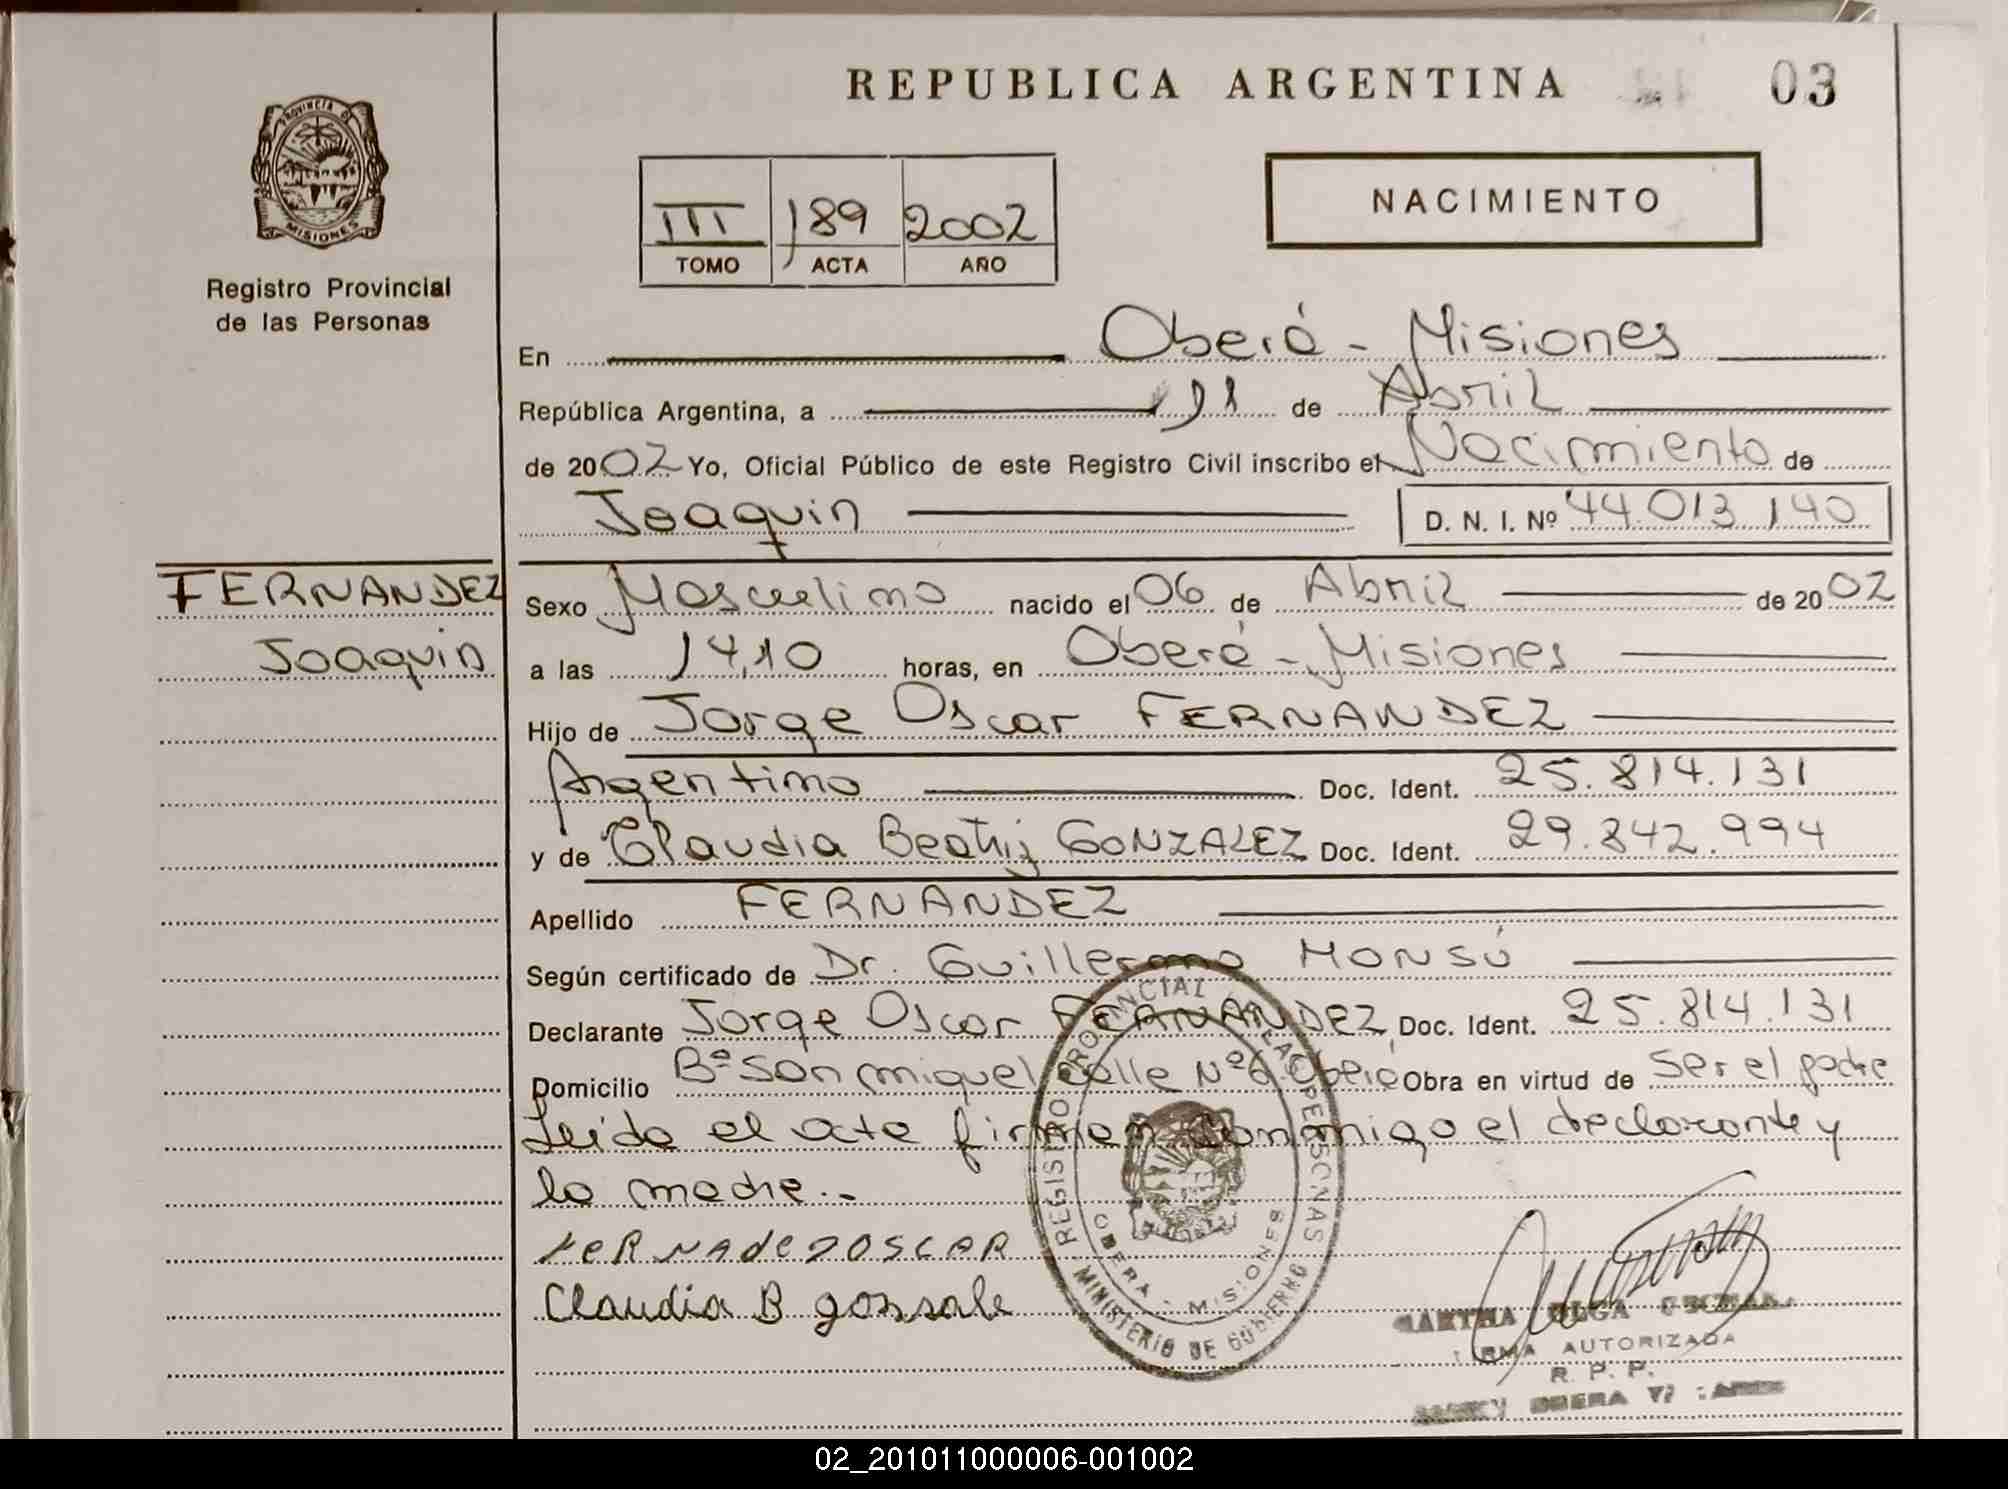 REPUBLICA ARGENTINA
03
PROVINCIA DE
MISIONES
Registro Provincial
de las Personas
III 189 2002
TOMO ACTA AÑO
NACIMIENTO
En Oberá - Misiones
República Argentina, a de Abril
de 2002 Yo, Oficial Público de este Registro Civil inscribo el Nacimiento de
Joaquin D. N. I. Nº 44.013.140
FERNANDEZ
Joaquin
Sexo Masculino nacido el 06 de Abril de 2002
a las 14,10 horas, en Oberá - Misiones
Hijo de Jorge Oscar FERNANDEZ
Argentino Doc. Ident. 25.814.131
y de Claudia Beatriz GONZALEZ Doc. Ident. 29.842.994
Apellido FERNANDEZ
Según certificado de Dr. Guillermo MONSÚ
Declarante Jorge Oscar FERNANDEZ Doc. Ident. 25.814.131
Domicilio Bº San miguel calle Nº 6 Oberá Obra en virtud de ser el padre
Leida el acta firman conmigo el declarante y
la madre.-
FeRNAdezOSCAR
Claudia B gonsale
REGISTRO PROVINCIAL DE LAS PERSONAS
OBERA - MISIONES
MINISTERIO DE GOBIERNO
MARTHA OLGA
FIRMA AUTORIZADA
R. P. P.
OBERA
02_201011000006-001002